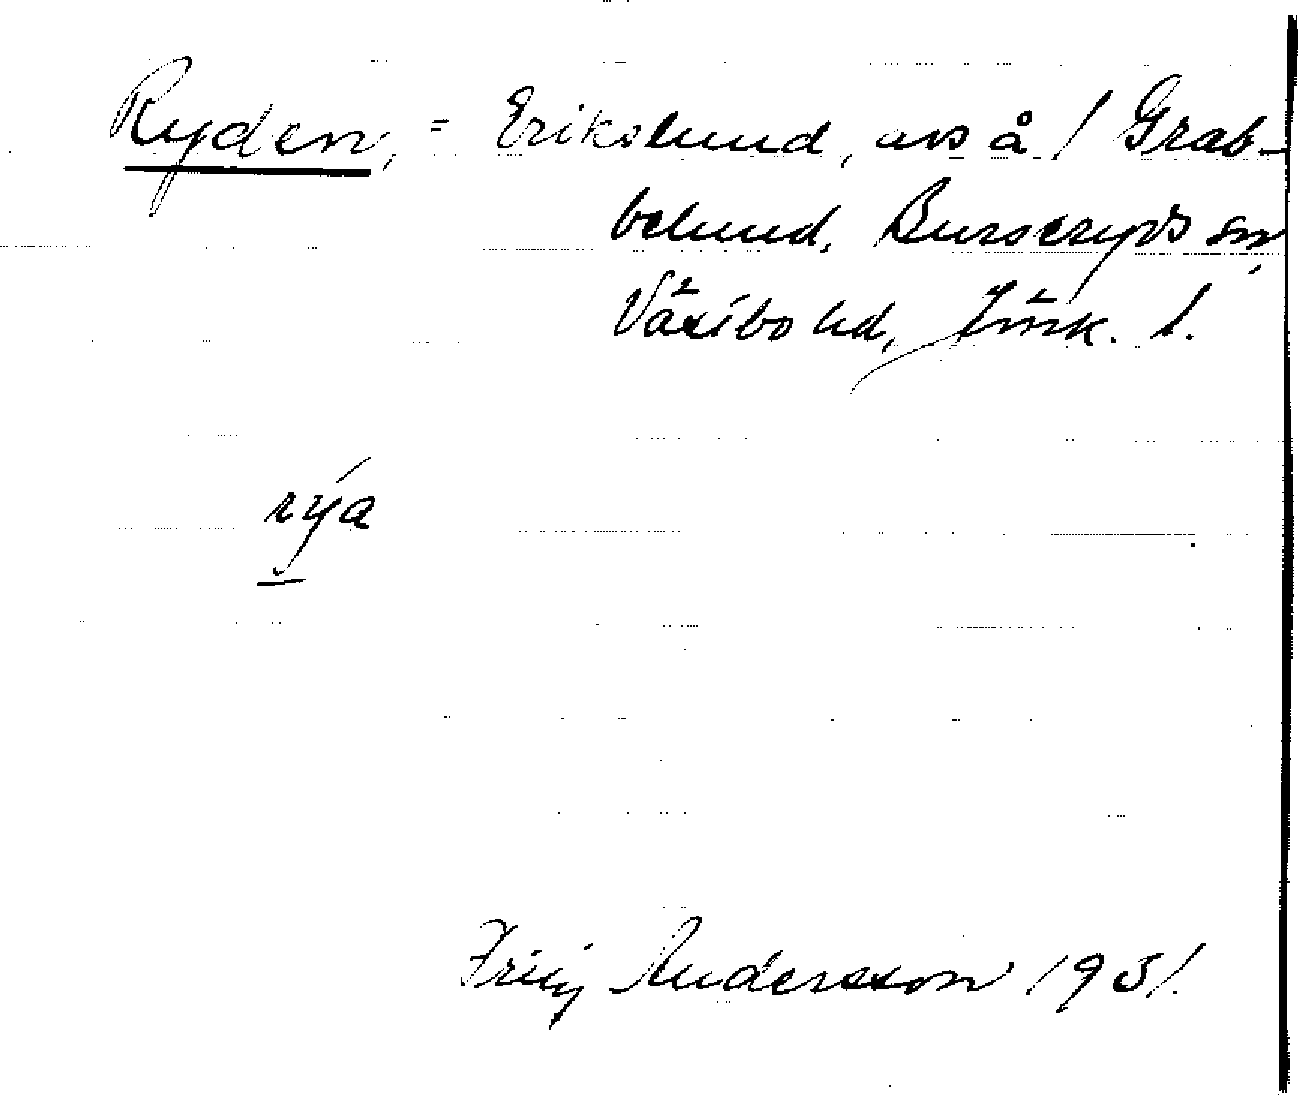 Ryden, = Erikslund, avs å / Grab-
belund, Burseryds sn,
Västbo hd, Jönk. l.
rýa
Andersson 1931.